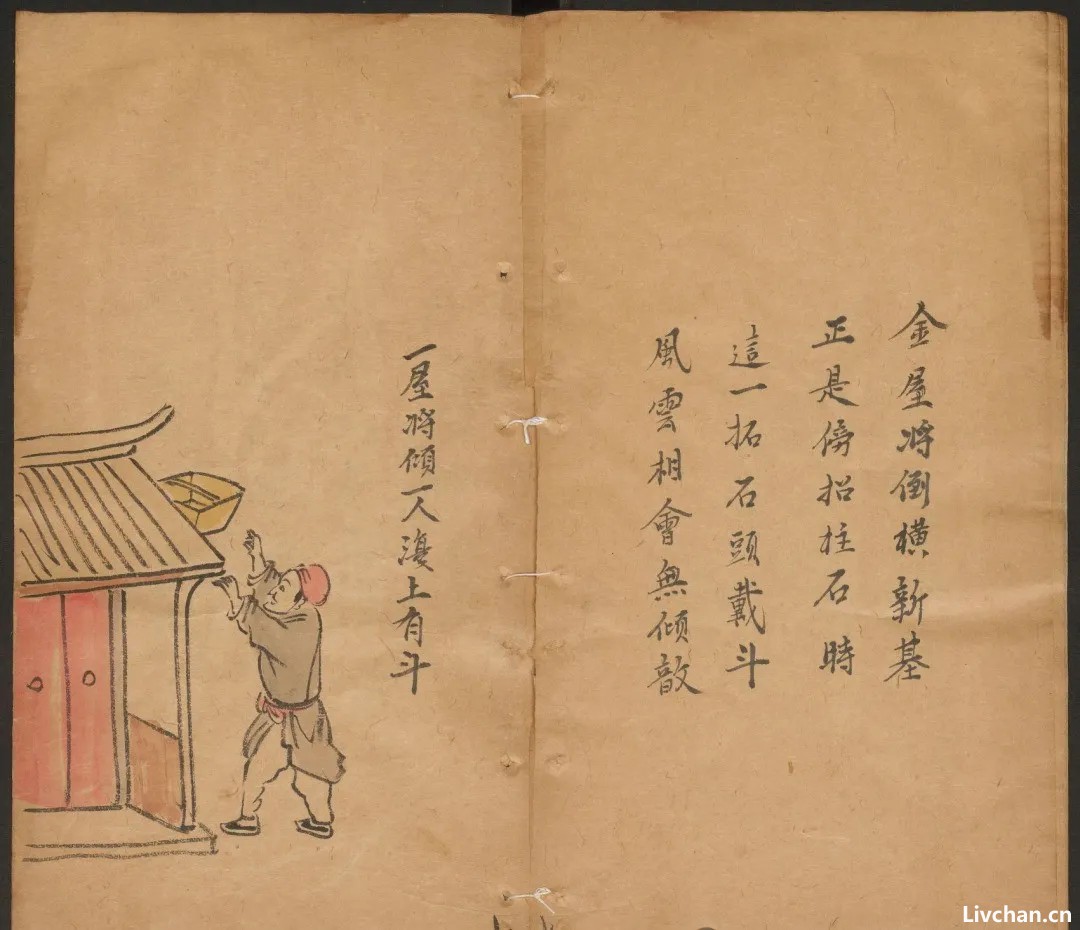 金屋將倒橫新基
正是傍招柱石時
這一拓石頭載斗
風雲相會無傾敧
一屋將傾一人漫上有斗
Livchan.cn